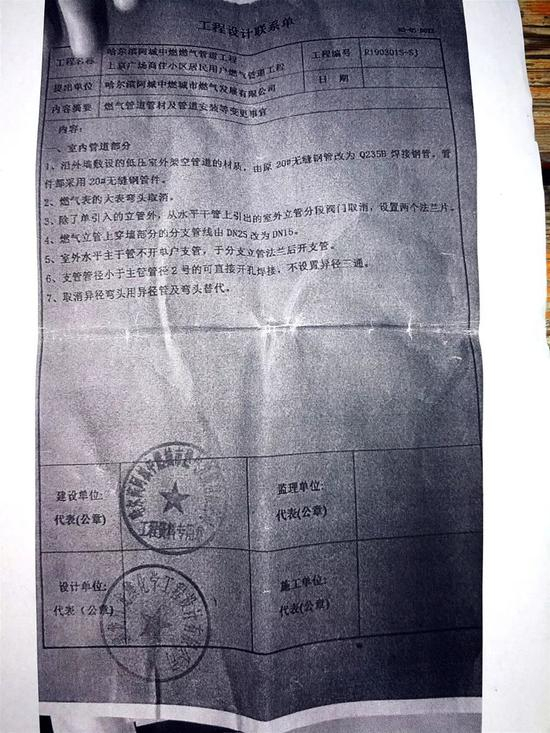 工程设计联系单
工程名称
哈尔滨阿城中燃燃气管道工程
上京广场商住小区居民用户燃气管道工程
工程编号
R190301S-SJ
提出单位
哈尔滨阿城中燃城市燃气发展有限公司
日 期
内容摘要
燃气管道管材及管道安装等变更事宜
内容:
一、室内管道部分
1、沿外墙敷设的低压室外架空管道的材质,由原20#无缝钢管改为Q235B焊接钢管,管
件都采用20#无缝钢管件。
2、燃气表的大表弯头取消。
3、除了单引入的立管外,从水平干管上引出的室外立管分段阀门取消,设置两个法兰片。
4、燃气立管上穿墙部分的分支管线由DN25改为DN15。
5、室外水平主干管不开单户支管,于分支立管法兰后开支管。
6、支管管径小于主管管径2号的可直接开孔焊接,不设置异径三通。
7、取消异径弯头用异径管及弯头替代。
建设单位:
代表(公章)
监理单位:
代表(公章)
工程资料专用章
设计单位:
代表(公章)
施工单位:
代表(公章)